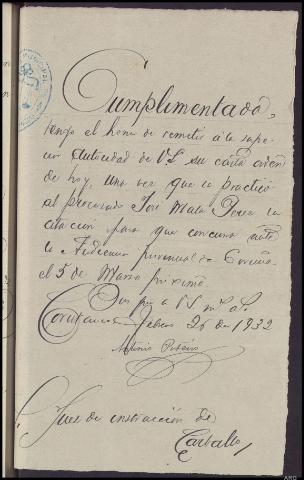 Cumplimentada,
tengo el honor de remitir á la supe-
rior Autoridad de VS su carta orden
de hoy, una vez que se practicó
al procesado José Mata Perez la
citación para que concurra ante
la Audiencia provincial de Coruña
el 5 de Marzo próximo.
Dios gue a VS m. a.
Febrero 26 de 1932
Antonio
Juez de instrucción de
Carballo